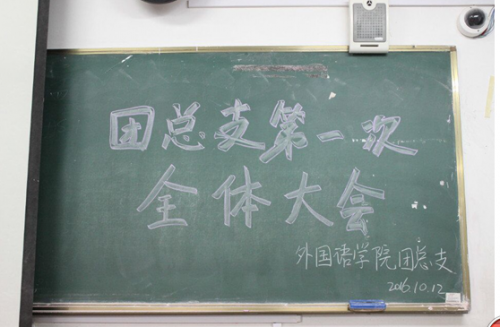 团总支第一次
全体大会
外国语学院团总支
2016.10.12